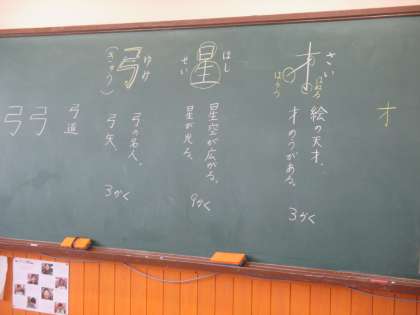 才
さい
才
はねる
はらう
絵の天才。
才のうがある。
3かく
ほし
星
せい
星空が広がる。
星が光る。
9かく
ゆみ
弓
(きゅう)
弓の名人。
弓矢。
3かく
弓道
弓
弓